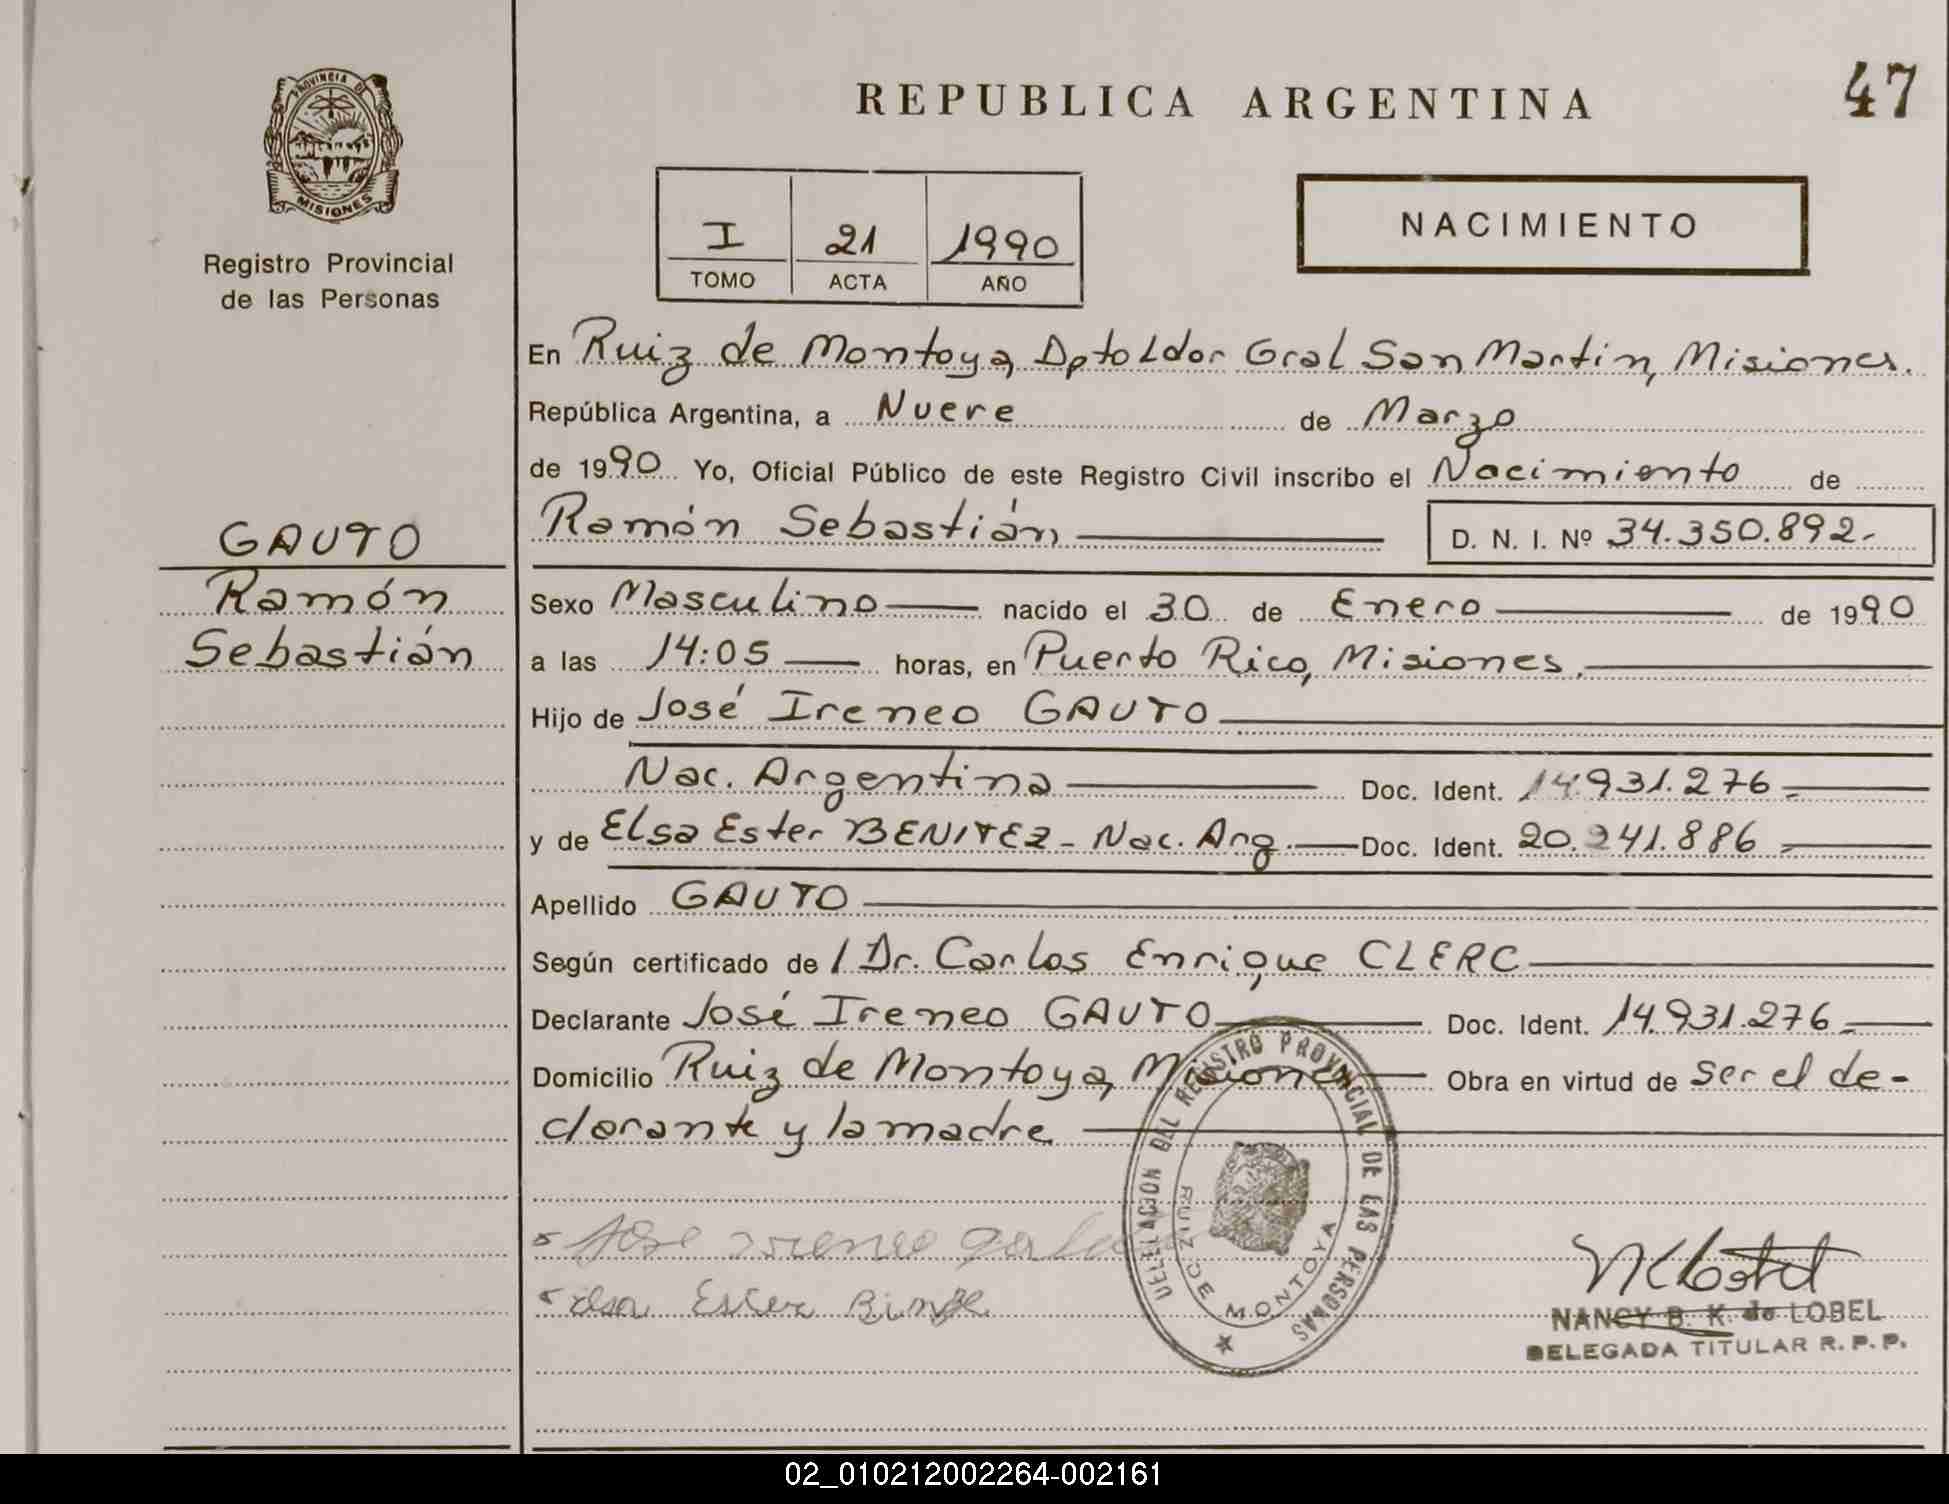 PROVINCIA DE
MISIONES
Registro Provincial
de las Personas
GAUTO
Ramón
Sebastián
REPUBLICA ARGENTINA
47
I 21 1990
TOMO ACTA AÑO
NACIMIENTO
En Ruiz de Montoya, Dpto Ldor Gral San Martín, Misiones.
República Argentina, a Nueve de Marzo
de 1990 Yo, Oficial Público de este Registro Civil inscribo el Nacimiento de
Ramón Sebastián D. N. I. Nº 34.350.892.-
Sexo Masculino nacido el 30 de Enero de 1990
a las 14:05 horas, en Puerto Rico, Misiones.
Hijo de José Ireneo GAUTO
Nac. Argentina Doc. Ident. 14.931.276
y de Elsa Ester BENITEZ - Nac. Arg. Doc. Ident. 20.241.886
Apellido GAUTO
Según certificado de / Dr. Carlos Enrique CLERC
Declarante José Ireneo GAUTO Doc. Ident. 14.931.276
Domicilio Ruiz de Montoya, Misiones Obra en virtud de ser el de-
clarante y la madre
DELEGACION DEL REGISTRO PROVINCIAL DE LAS PERSONAS
RUIZ DE MONTOYA
José Ireneo
Elsa Ester
NANCY B. K. de LOBEL
DELEGADA TITULAR R. P. P.
02_010212002264-002161